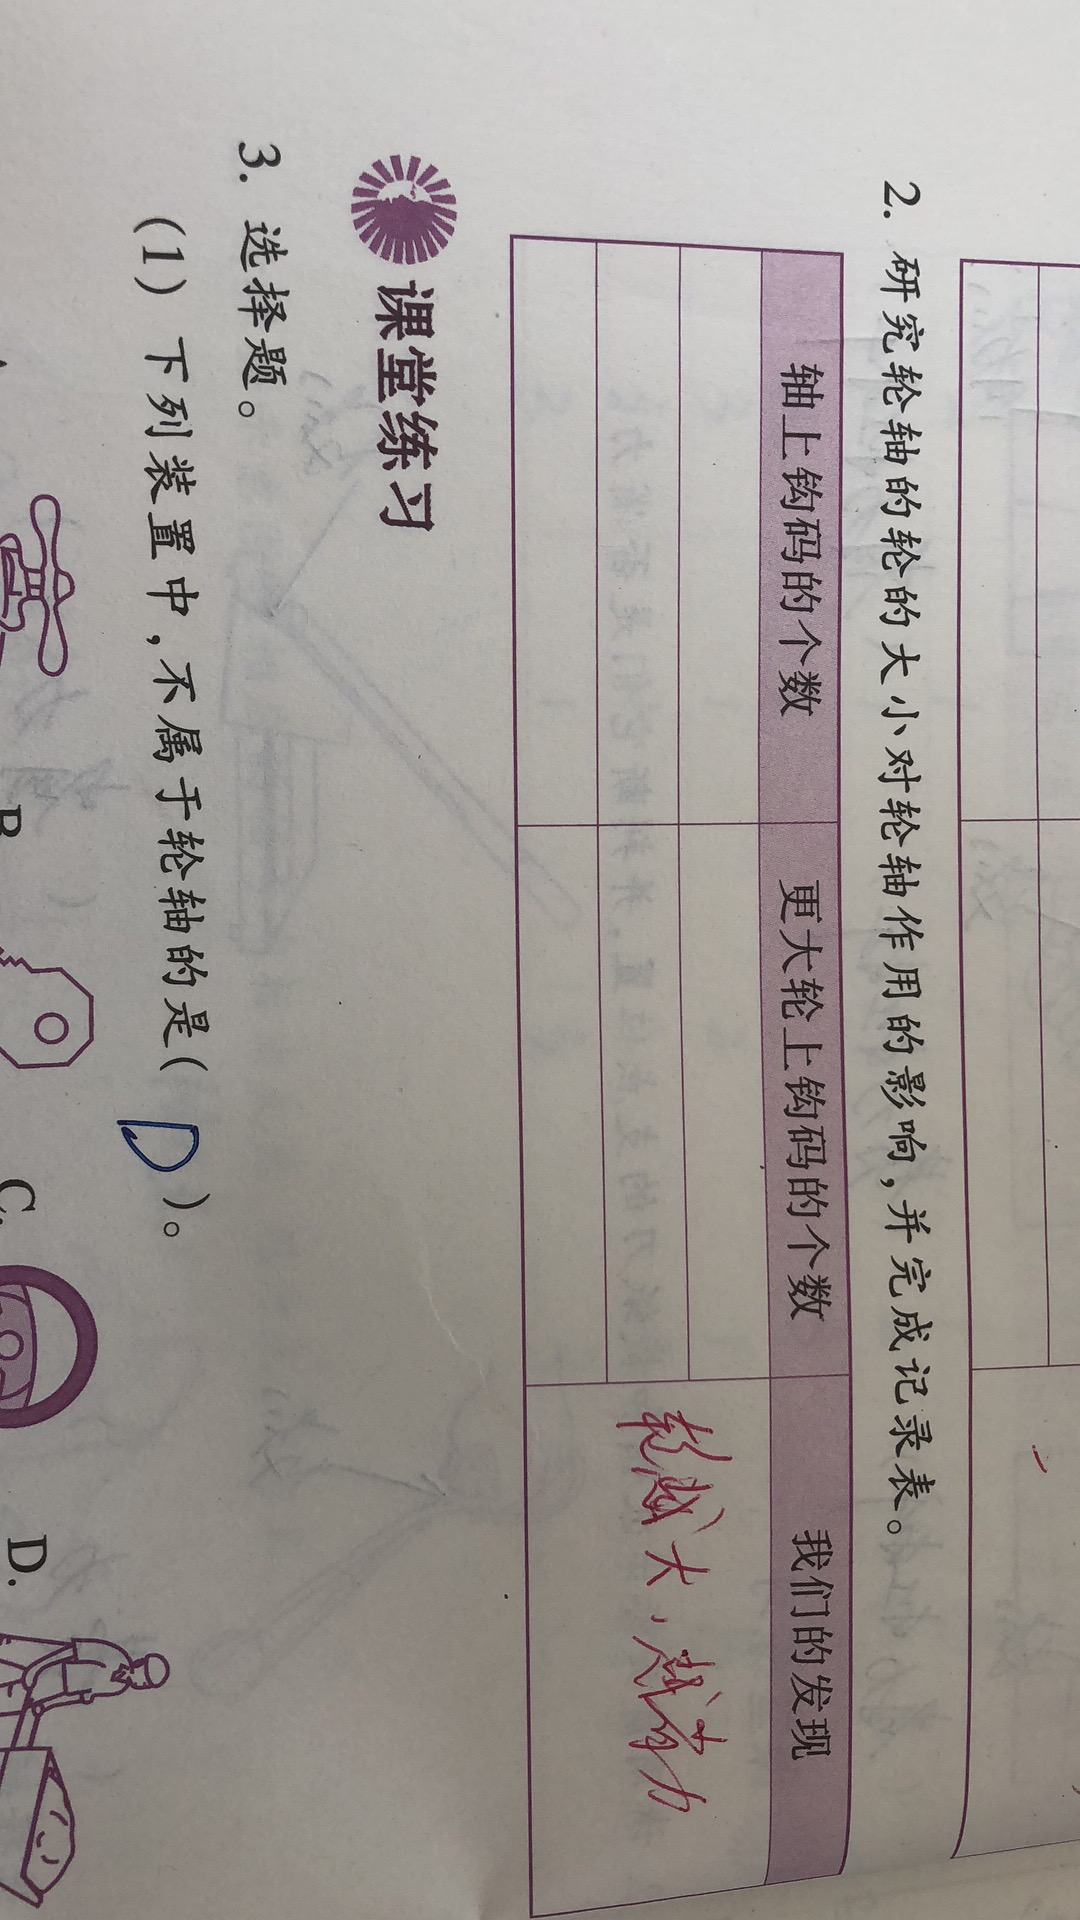 2. 研究轮轴的轮的大小对轮轴作用的影响,并完成记录表。
轴上钩码的个数 更大轮上钩码的个数 我们的发现
轮越大,越省力
课堂练习
3. 选择题。
(1) 下列装置中,不属于轮轴的是( D )。
B C. D.